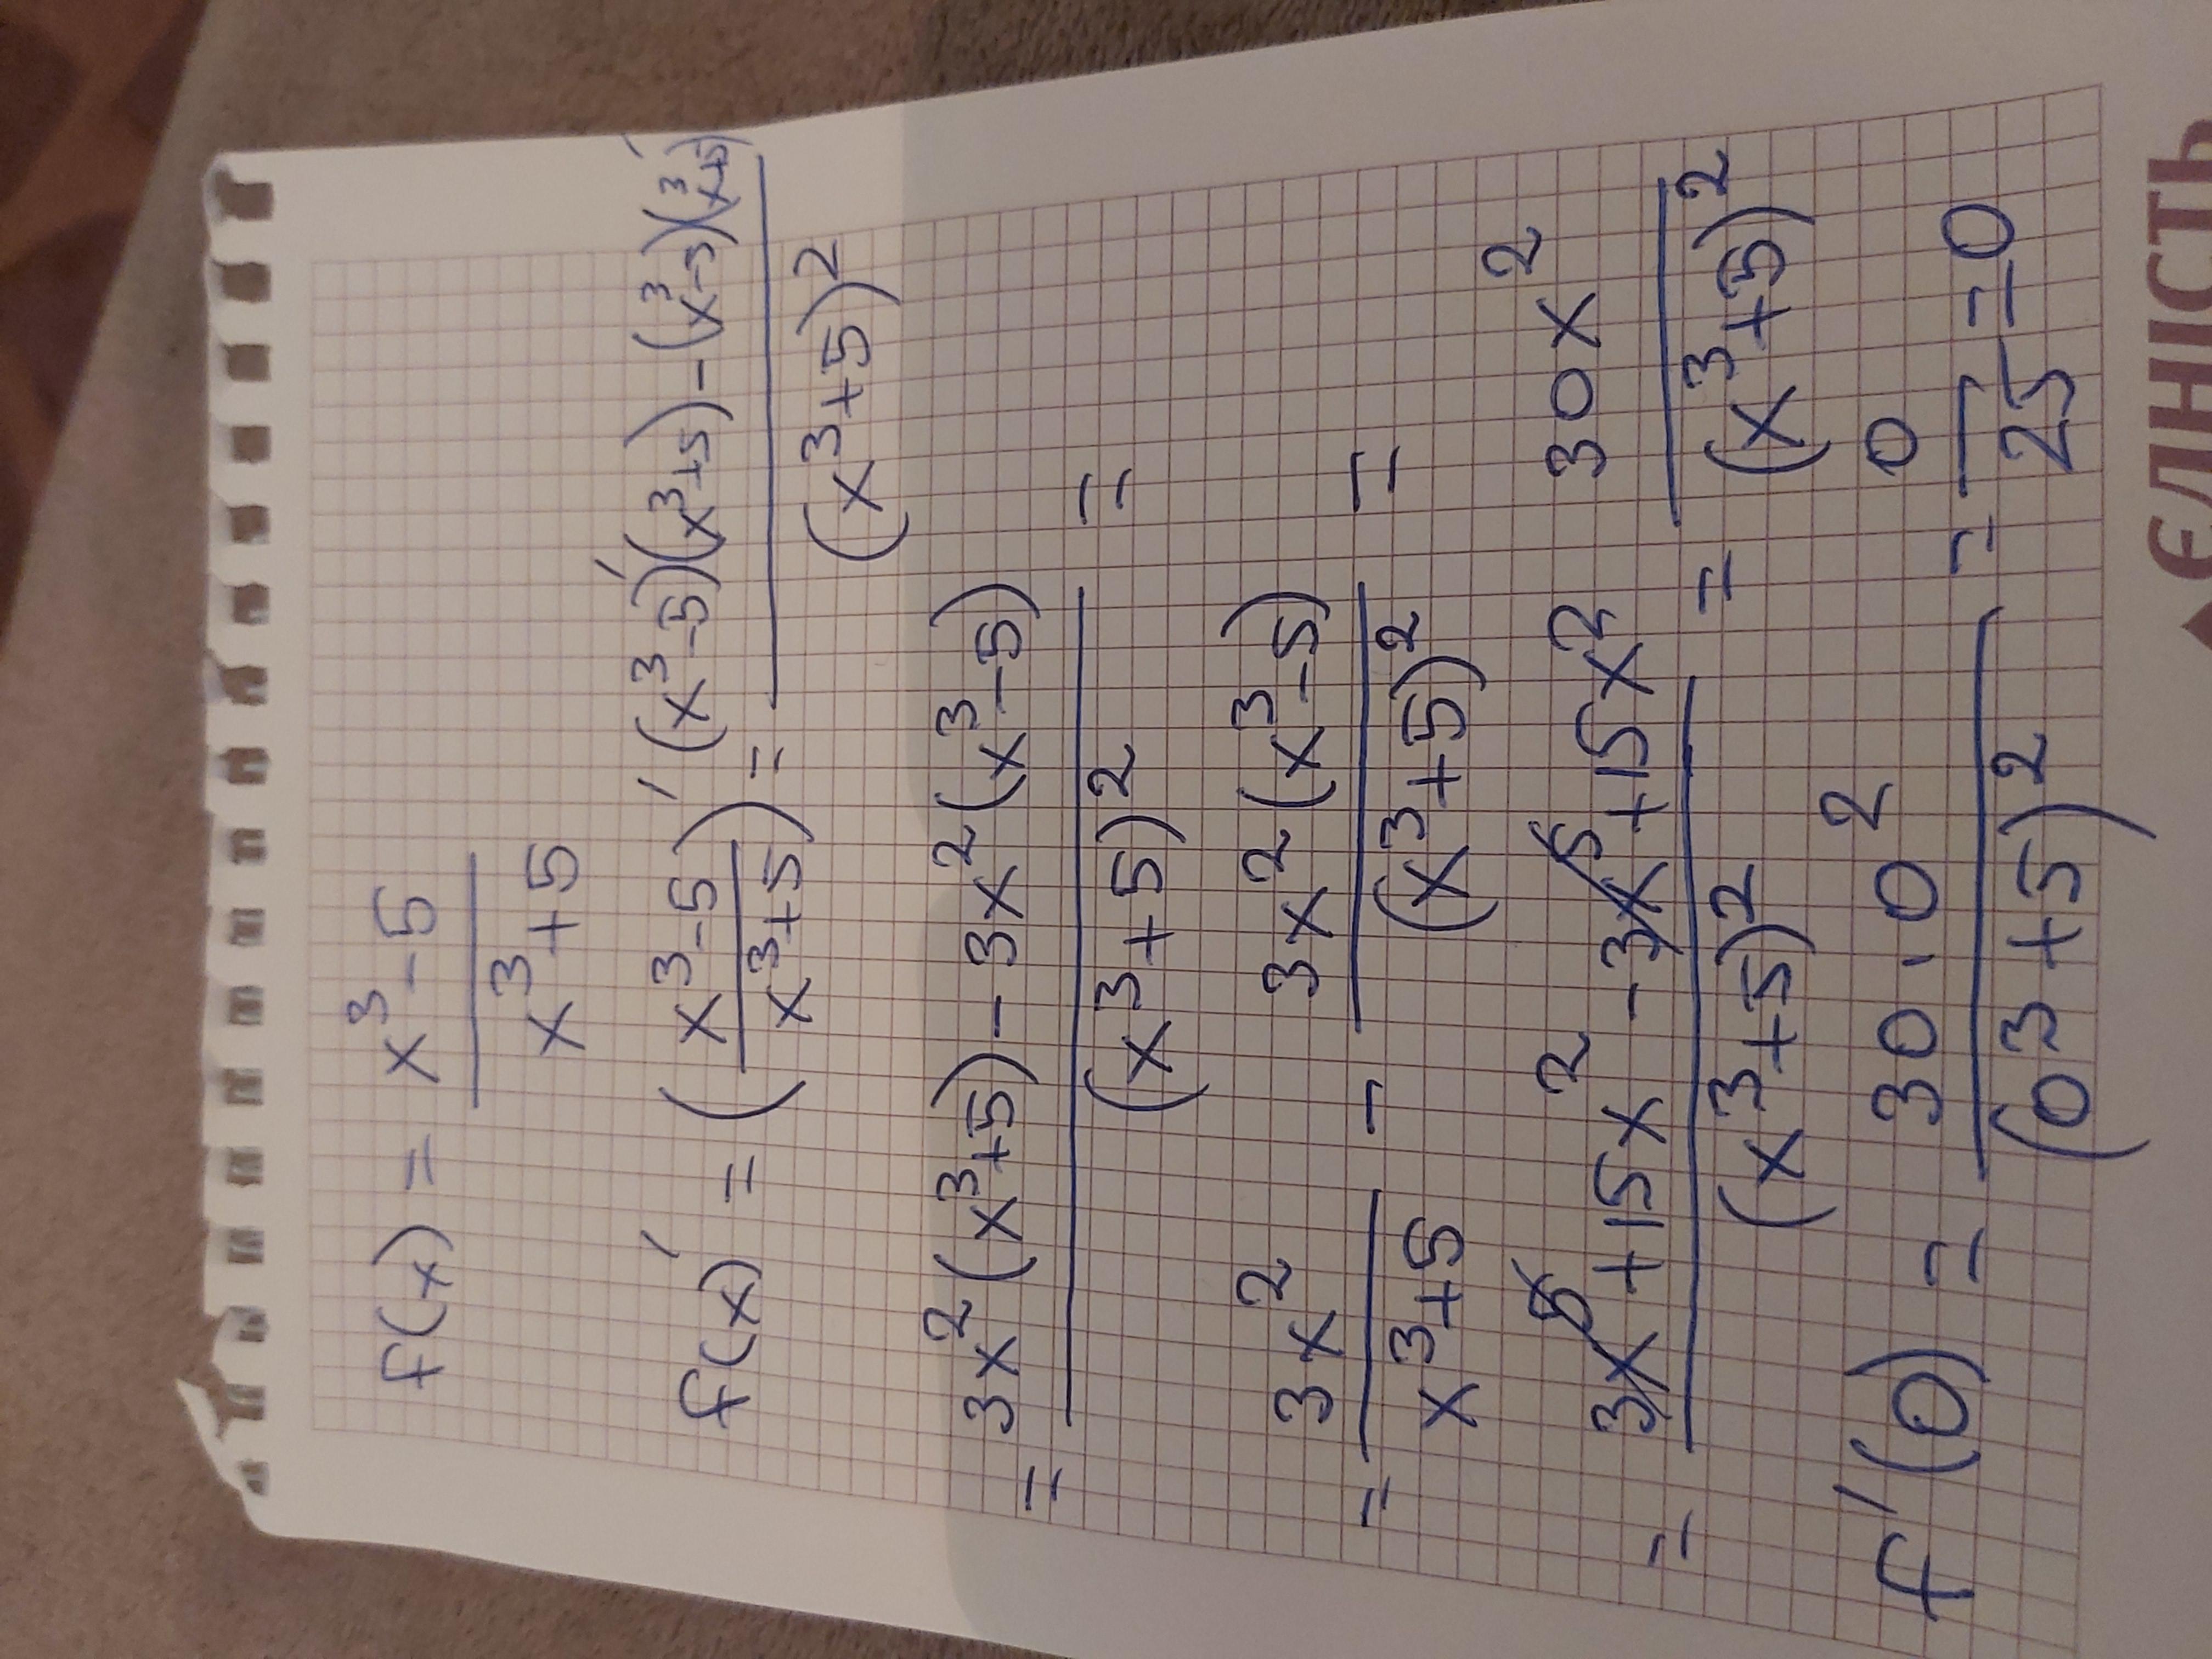 f(x) = (x³-5)/(x³+5)
f(x)' = ((x³-5)/(x³+5))' = ((x³-5)'(x³+5)-(x³-5)(x³+5)')/(x³+5)²
= (3x²(x³+5)-3x²(x³-5))/(x³+5)² =
= 3x²/(x³+5) - 3x²(x³-5)/(x³+5)² =
= (3x⁵+15x²-3x⁵+15x²)/(x³+5)² = 30x²/(x³+5)²
f'(0) = 30·0²/(0³+5)² = 0/25 = 0
ЄДНІСТЬ